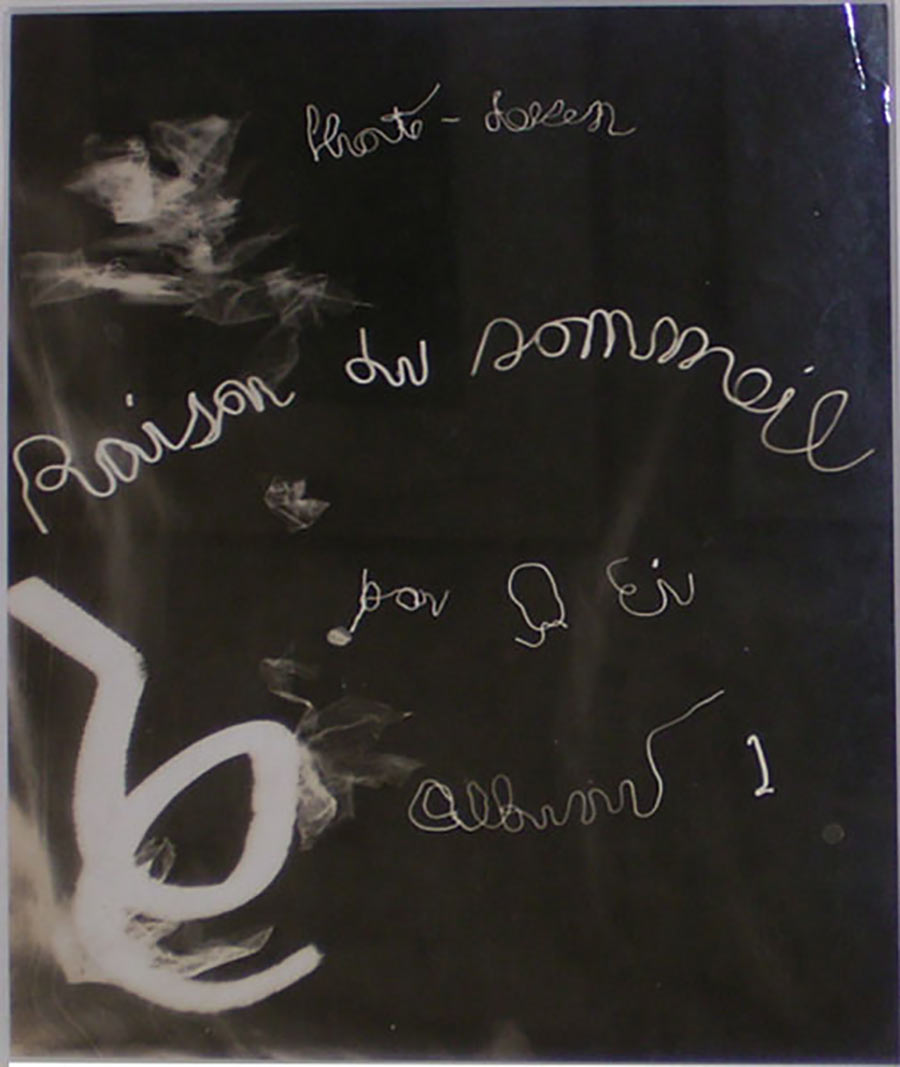 Photo - dessin
Raison du sommeil
par Q Ei
album 1